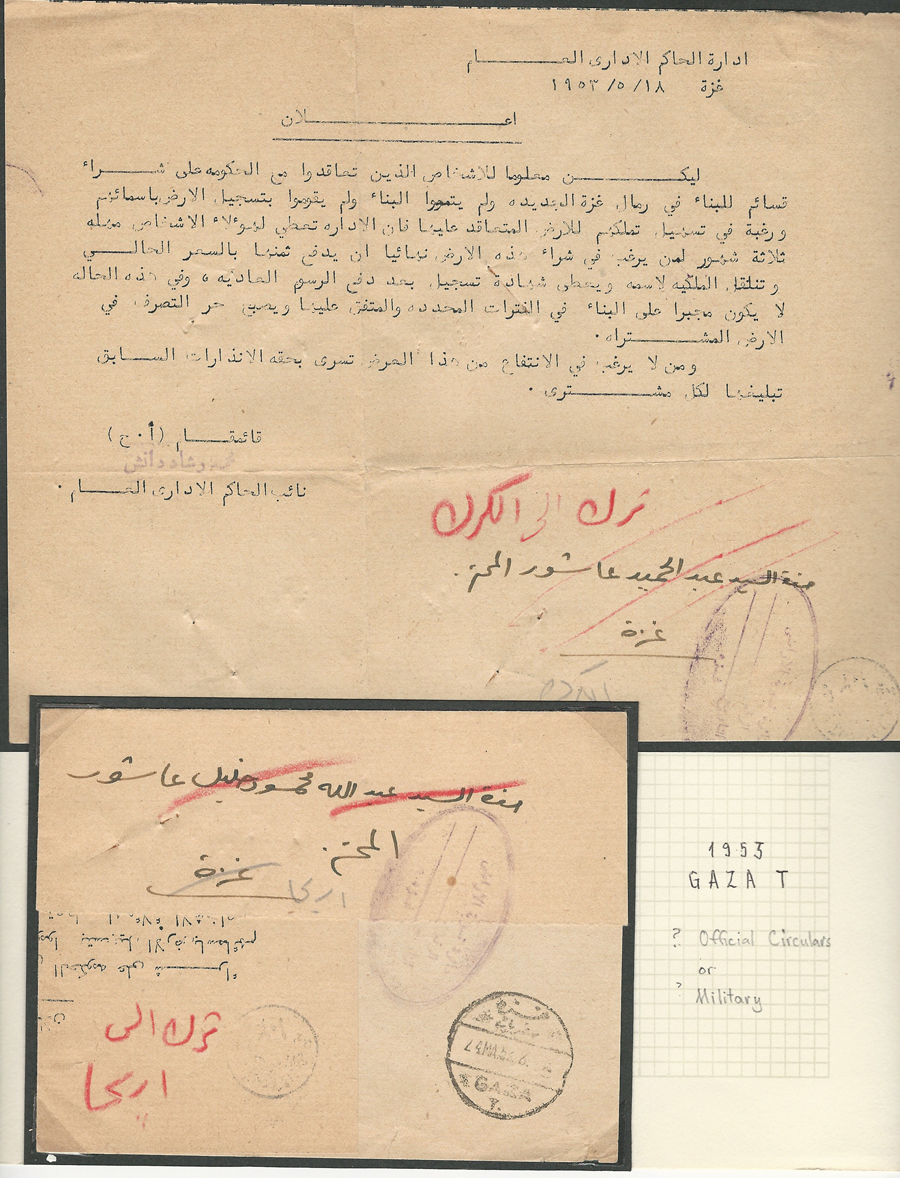 ادارة الحاكم الادارى العـــــام
غزة ١٩٥٣/٥/١٨
اعـــــلان
ليكـــــن معلوما للاشخاص الذين تعاقدوا مع الحكومه على شـــراء
قسائم للبناء في رمال غزة الجديده ولم يتموا البناء ولم يقوموا بتسجيل الارض باسمائهم
ورغبة في تسهيل تملكهم للارض المتعاقد عليها فان الاداره تعطي لهؤلاء الاشخاص مهله
ثلاثة شهور لمن يرغب في شراء هذه الارض نهائيا ان يدفع ثمنها بالسعر الحالـــي
وتنتقل الملكيه لاسمه ويعطى شهادة تسجيل بعد دفع الرسوم العاديه ، وفي هذه الحاله
لا يكون مجبرا على البناء في الفترات المحدده والمتفق عليها ويصبح حر التصرف في
الارض المشـــتراه ٠
ومن لا يرغب في الانتفاع من هذا العرض تسرى بحقه الانذارات الســـابق
تبليغها لكل مشـــترى ٠
قائمقـــام (أ ٠ ح)
محمد رشاد دانش
نائب الحاكم الادارى العـــام ٠
ترك الى الكرك
حضرة السيد عبد الحميد عاشور المحترم.
غزة
الكرك
حضرة السيد عبد الله محمود خليل عاشور
المحترم.
غزة
اريحا
ترك الى
اريحا
غزة
GAZA
T.
1953
GAZA T
? Official Circulars
or
? Military